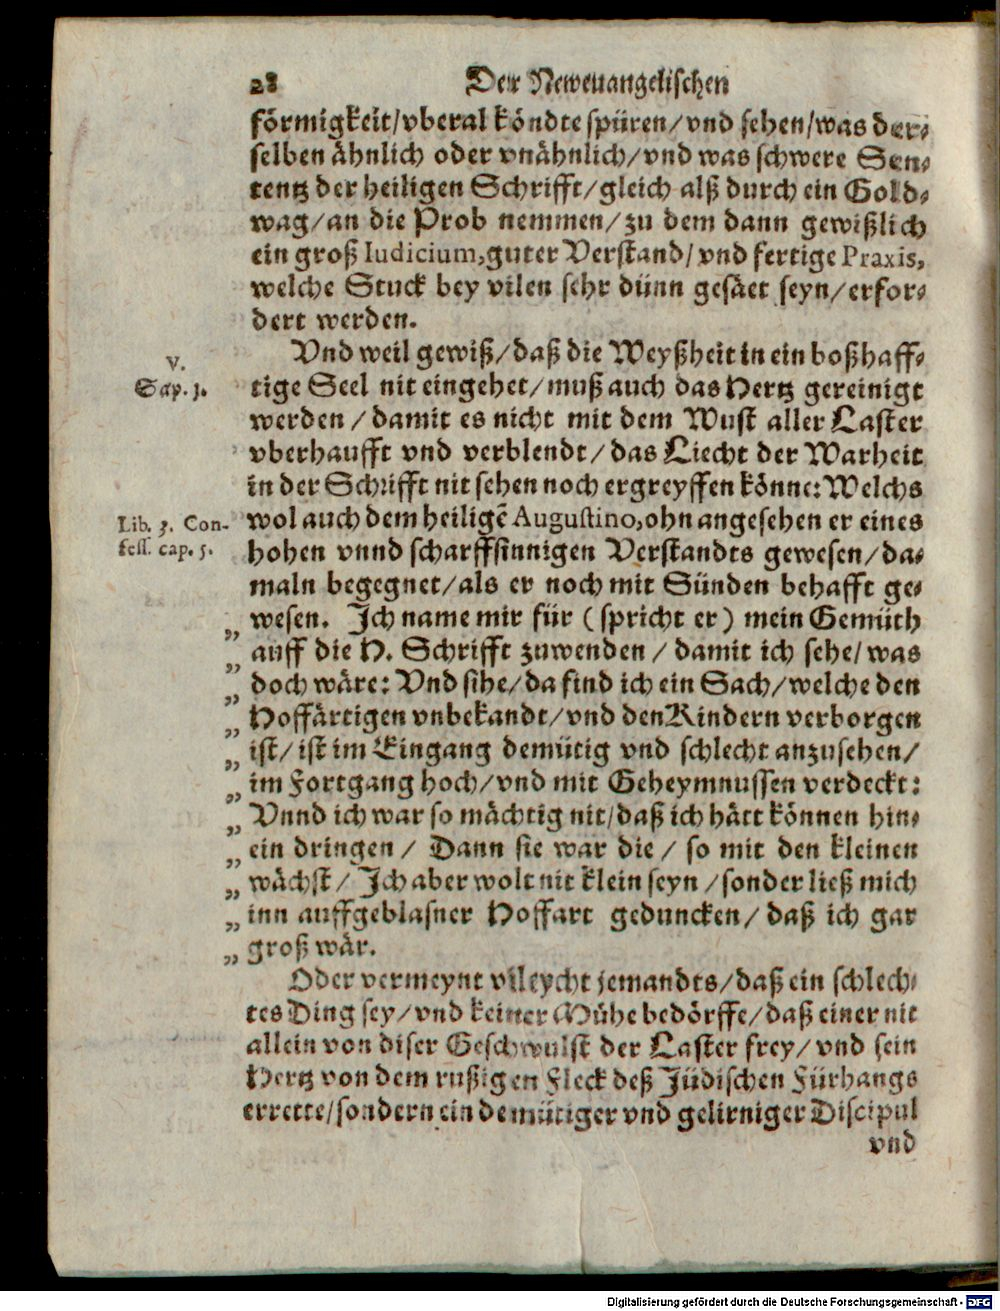 28 Der Neweuangelischen
förmigkeit/vberal köndte spüren/vnd sehen/was der-
selben ähnlich oder vnähnlich/vnd was schwere Sen-
tentz der heiligen Schrifft/gleich alß durch ein Gold-
wag/an die Prob nemmen/zu dem dann gewißlich
ein groß Iudicium,guter Verstand/vnd fertige Praxis,
welche Stuck bey vilen sehr dünn gesäet seyn/erfor-
dert werden.
V.
Sap. 1.
Vnd weil gewiß/daß die Weyßheit in ein boßhaff-
tige Seel nit eingehet/muß auch das Hertz gereinigt
werden/damit es nicht mit dem Wust aller Laster
vberhaufft vnd verblendt/das Liecht der Warheit
in der Schrifft nit sehen noch ergreyffen könne:Welchs
Lib. 3. Con-
fess. cap. 5.
wol auch dem heiligẽ Augustino,ohn angesehen er eines
hohen vnnd scharffsinnigen Verstandts gewesen/da-
maln begegnet/als er noch mit Sünden behafft ge-
wesen. Ich name mir für (spricht er) mein Gemüth
„ auff die H. Schrifft zuwenden/damit ich sehe/was
„ doch wäre: Vnd sihe/da find ich ein Sach/welche den
„ Hoffärtigen vnbekandt/vnd den Kindern verborgen
„ ist/ist im Eingang demütig vnd schlecht anzusehen/
„ im Fortgang hoch/vnd mit Geheymnussen verdeckt:
„ Vnnd ich war so mächtig nit/daß ich hätt können hin-
„ ein dringen/ Dann sie war die/ so mit den kleinen
„ wächst/ Ich aber wolt nit klein seyn/sonder ließ mich
„ inn auffgeblasner Hoffart geduncken/daß ich gar
„ groß wär.
Oder vermeynt vileycht jemandts/daß ein schlech-
tes Ding sey/vnd keiner Mühe bedörffe/daß einer nit
allein von diser Geschwulst der Laster frey/vnd sein
Hertz von dem rußigen Fleck deß Jüdischen Fürhangs
errette/sondern ein demütiger vnd gelirniger Discipul
vnd
Digitalisierung gefördert durch die Deutsche Forschungsgemeinschaft - DFG